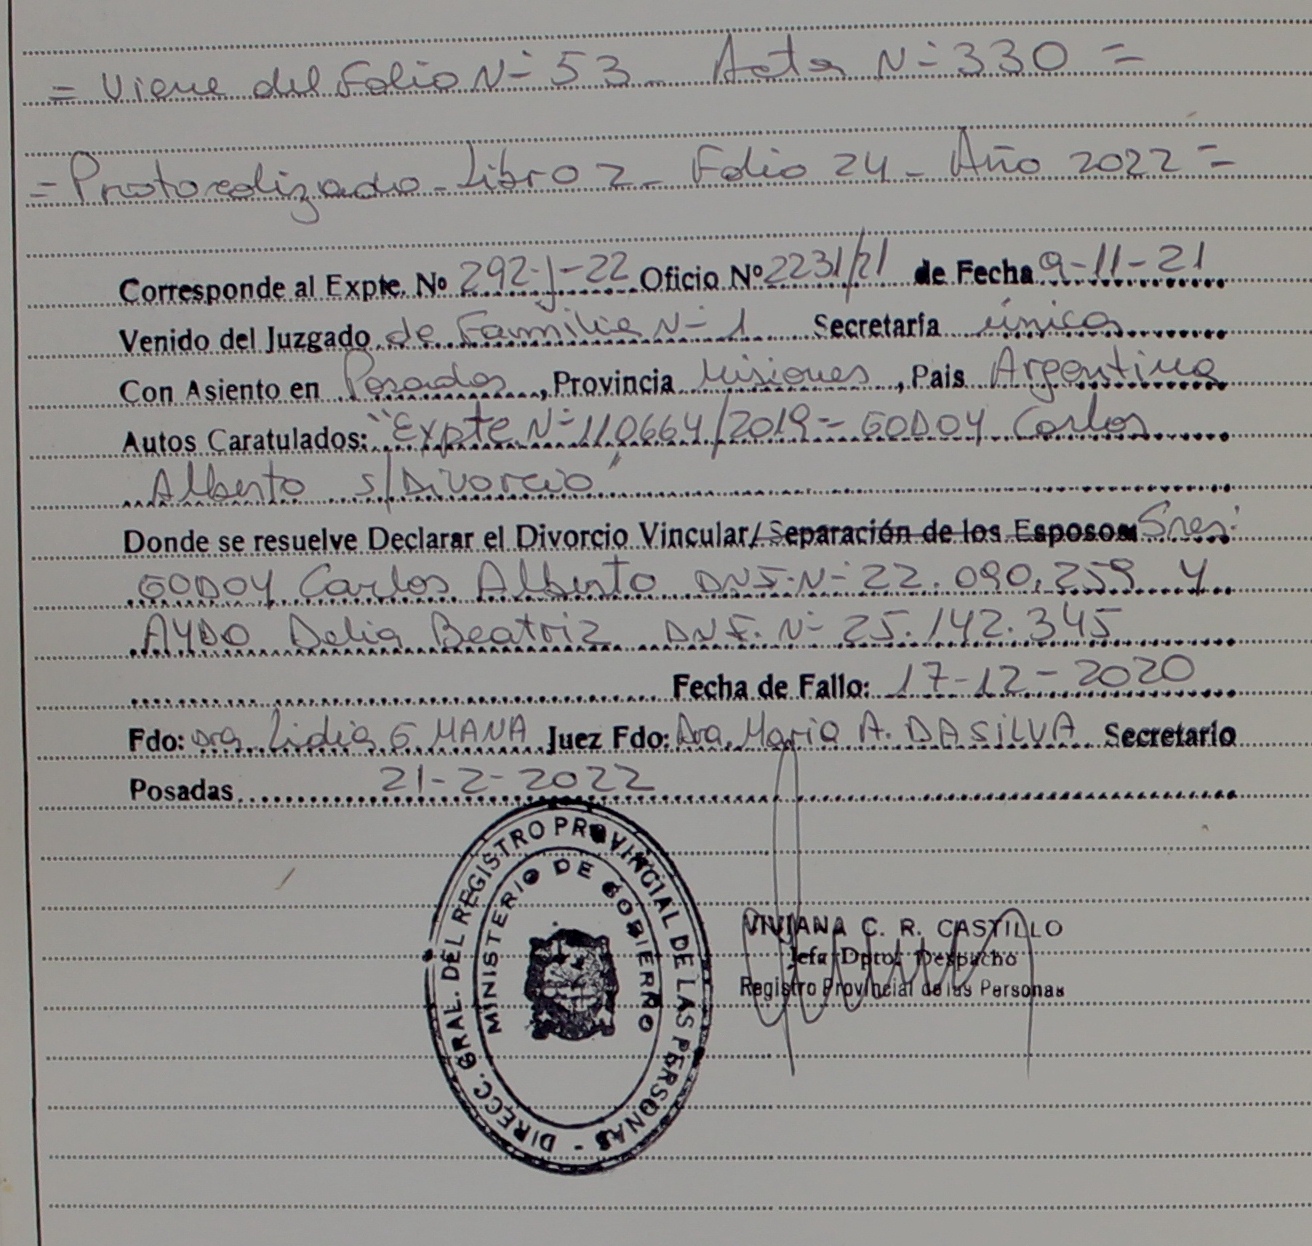 = Viene del Folio Nº 53 - Acta Nº 330 =
= Protocolizado - Libro 2 - Folio 24 - Año 2022 =
Corresponde al Expte. Nº 292-J-22 Oficio Nº 2231/21 de Fecha 9-11-21
Venido del Juzgado de Familia Nº 1 Secretaría única
Con Asiento en Posadas, Provincia Misiones, Pais Argentina
Autos Caratulados: "Expte Nº 110664/2019 - GODOY Carlos
Alberto s/Divorcio"
Donde se resuelve Declarar el Divorcio Vincular/ Separación de los Esposos Sres:
GODOY Carlos Alberto DNI. Nº 22.090.259 y
AYDO Delia Beatriz DNI. Nº 25.142.345
Fecha de Fallo: 17-12-2020
Fdo: Dra Lidia G MANA Juez Fdo: Dra. Maria A. DASILVA Secretario
Posadas 21-2-2022
DIRECC. GRAL. DEL REGISTRO PROVINCIAL DE LAS PERSONAS -
MINISTERIO DE GOBIERNO
VIVIANA C. R. CASTILLO
Jefa Dpto. Despacho
Registro Provincial de las Personas